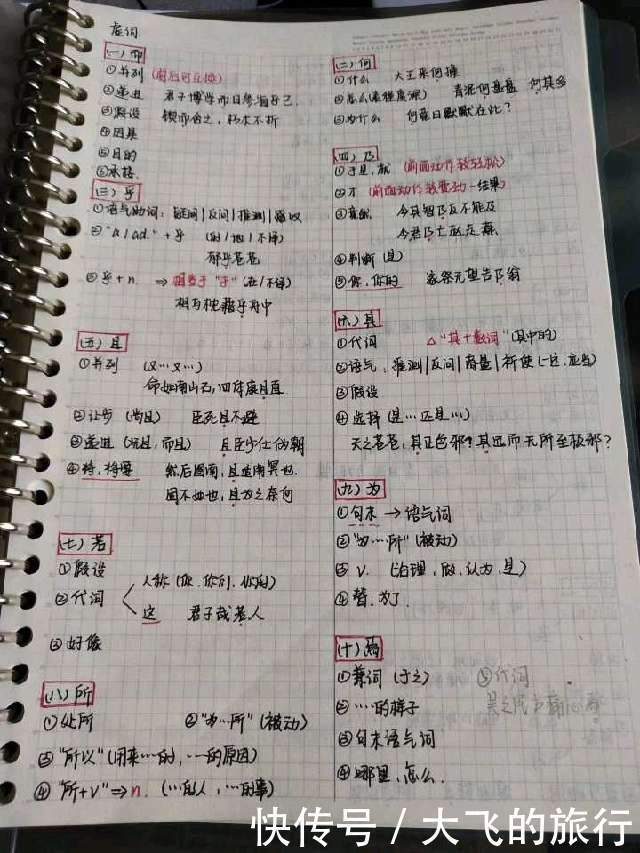 虚词
(一) 而
①并列 (前后可互换)
②递进 君子博学而日参省乎己
③假设 锲而舍之，朽木不折
④因果
⑤目的
⑥承接
(三) 乎
①语气助词：疑问|反问|推测|感叹
②"a/ad." + 乎 (形/地/不译)
郁乎苍苍
③乎+n. ⇒ 相当于"于" (在/不译)
相与枕藉乎舟中
(五) 且
①并列 (又…又…)
命如南山石，四体康且直
②让步 (尚且) 臣死且不避
③递进 (况且，而且) 且臣少仕伪朝
④将，将要 然后图南，且适南冥也
因不如也，且为之奈何
(七) 若
①假设
②代词 人称 (你，你们，你的)
这 君子哉若人
③好像
(八) 所
①处所 ②"为…所" (被动)
③"所以" (用来…的，…的原因)
④"所+v" ⇒ n. (…的人，…的事)
(二) 何
①什么 大王来何操
②怎么(表程度深) 青泥何盘盘 何其多
③为什么 何昼日默默在此？
(四) 乃
①于是，就 (前面动作较轻松)
②才 (前面动作较费劲-结果)
③竟然 今其智乃反不能及
今君乃亡赵走燕
④判断 (是)
⑤你，你的 家祭无忘告乃翁
(六) 其
①代词 △"其+数词" (其中的)
②语气，推测|反问|商量|祈使 (一定，应当)
③假设
④选择 (是…还是…)
天之苍苍，其正色邪？其远而无所至极邪？
(九) 为
①句末 → 语气词
②"为…所" (被动)
③v. (治理，做，认为，是)
④替，为了
(十) 焉
①兼词 (于之) ⑤代词
②…的样子
③句末语气词
④哪里，怎么
快传号 / 大飞的旅行